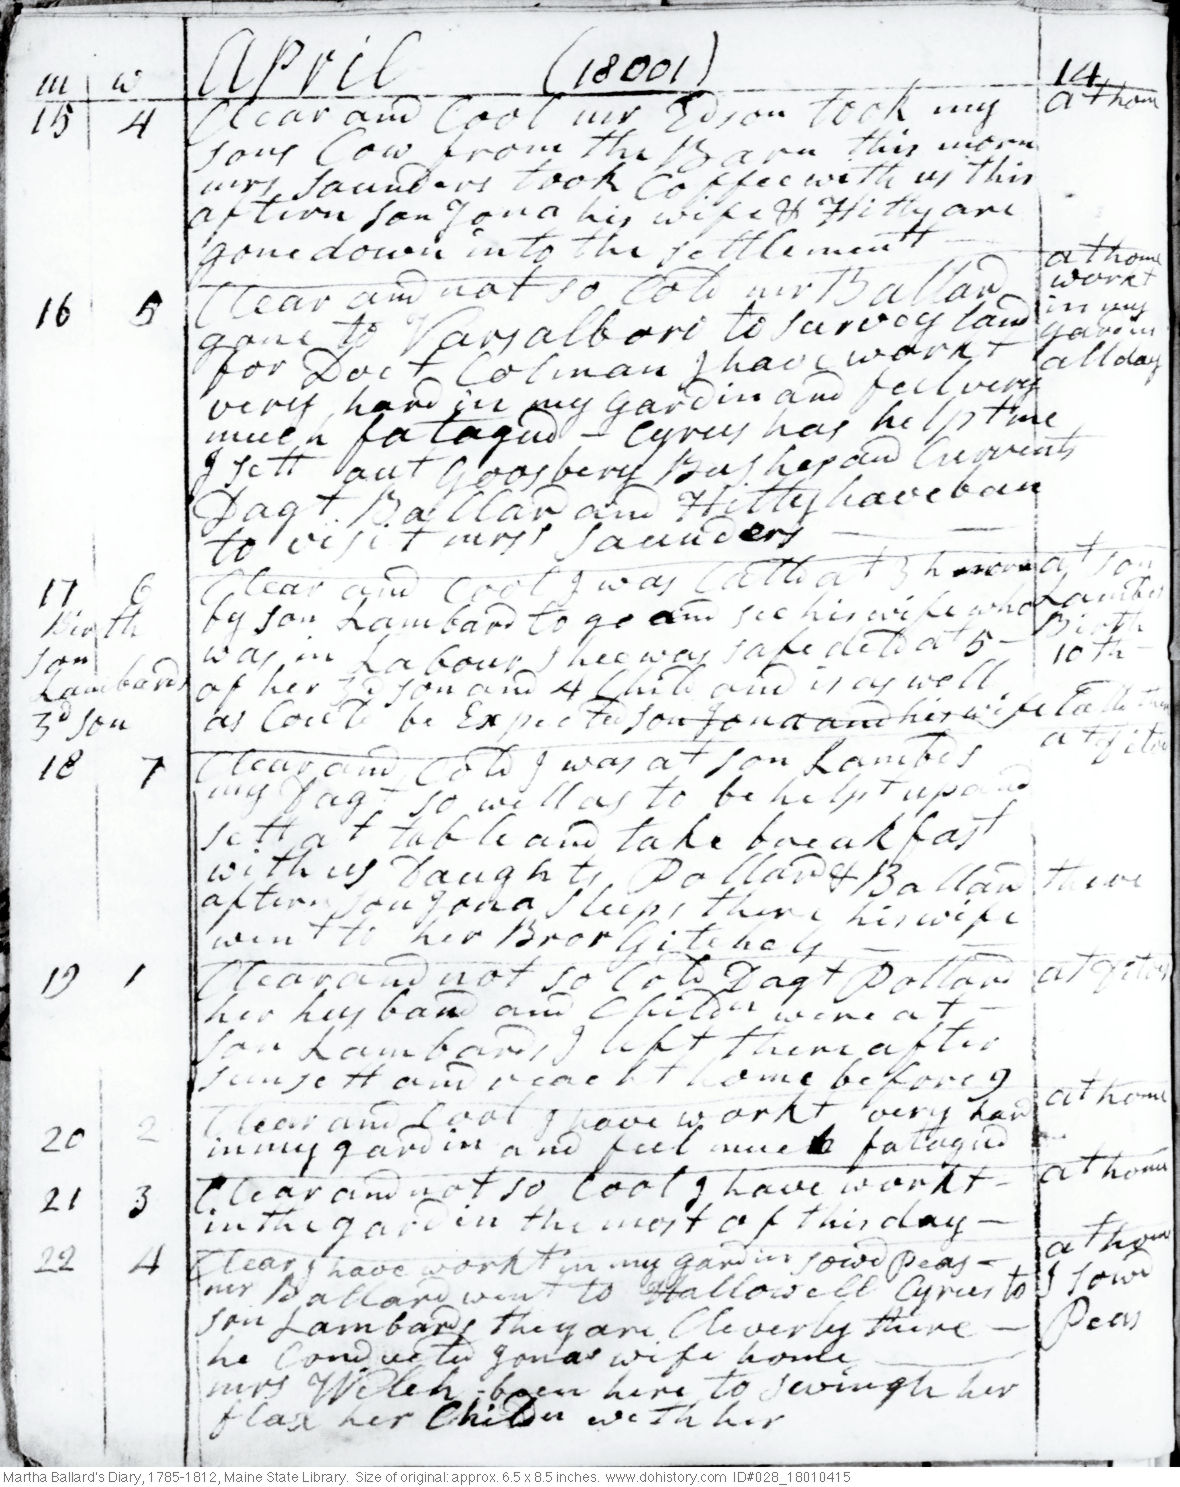 m w April (18001) 14
15 4 Clear and Cool mr Edson took my at home
sons Cow from the Barn this morn
mrs Saunders took Coffee with us this
aftern son Jona his wife & Hitty are
gone down into the settlement
16 5 Clear and not so Cold mr Ballard at home
gone to Varsalboro to survey land workt
for Doct Colman I have workt in my
very hard in my gardin and feel very gardin
much fatagud - Cyrus has helpt me all day
I sett out Goosbery Bushes and Currents
Dagt Ballard and Hitty have ban
to visit mrss Saunders
17 6 Clear and Cool I was Calld at 3 h morn at son
by son Lambard to go and see his wife who Lambds
Birth was in Labour shee was safe deld at 5 - Birth
son of her 3d son and 4 Child and is as well 10th
Lambards as Could be Expected son Jona and his wife Calld there
3d son
18 7 Clear and Cold I was at son Lambds at ditto
my Dagt so well as to be helpt up and
sett at table and take breakfast
with us Daughts Pollard & Ballard there
aftern son Jona sleeps there his wife
went to her Bror Gilchey
19 1 Clear and not so Cold Dagt Pollard at ditto
her husband and Childn were at -
son Lambards I left there after
sunsett and reacht home before 9
20 2 Clear and Cool I have workt very hard at home
in my gardin and feel much fatagud
21 3 Clear and not so Cool I have workt - at home
in the gardin the most of this day -
22 4 Clear I have workt in my gardin sowd Peas - at home
mr Ballard went to Hallowell Cyrus to I sowd
son Lambards they are Cleverly there - Peas
he Conducted Jonas wife home
mrs Welch been here to swingle her
flax her Childn with her
Martha Ballard's Diary, 1785-1812, Maine State Library. Size of original: approx. 6.5 x 8.5 inches. www.dohistory.com ID#028_18010415